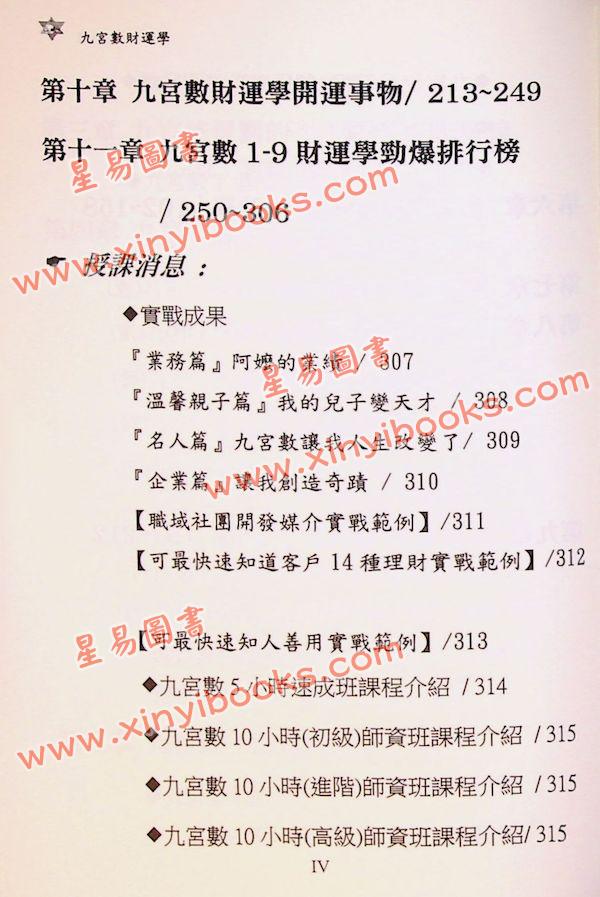 九宮數財運學
第十章 九宮數財運學開運事物/ 213~249
第十一章 九宮數 1-9 財運學勁爆排行榜
/ 250~306
☛ 授課消息：
◆實戰成果
『業務篇』阿嬤的業績 / 307
『溫馨親子篇』我的兒子變天才 / 308
『名人篇』九宮數讓我人生改變了/ 309
『企業篇』讓我創造奇蹟 / 310
【職域社團開發媒介實戰範例】/311
【可最快速知道客戶 14 種理財實戰範例】/312
【可最快速知人善用實戰範例】/313
◆九宮數 5 小時速成班課程介紹 /314
◆九宮數 10 小時(初級)師資班課程介紹 /315
◆九宮數 10 小時(進階)師資班課程介紹 /315
◆九宮數 10 小時(高級)師資班課程介紹/315
IV
星易圖書
www.xinyibooks.com
星易圖書
www.xinyibooks.com
星易圖書
www.xinyibooks.com